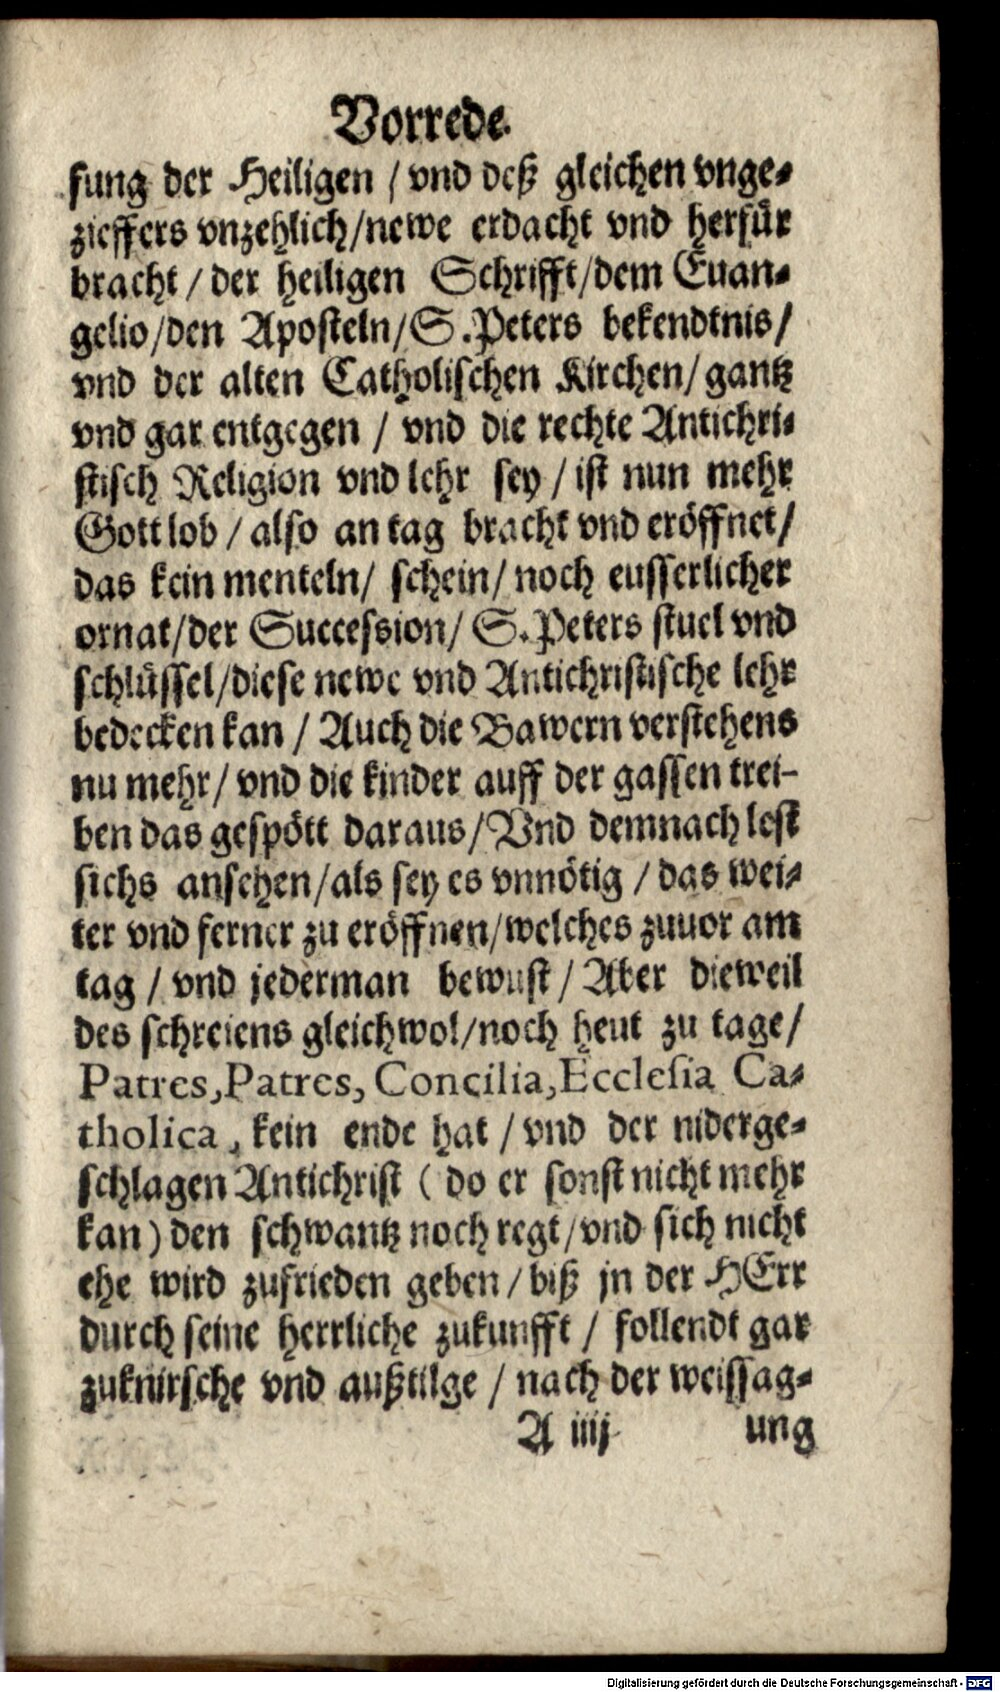 Vorrede.
fung der Heiligen / vnd deß gleichen vnge-
zieffers vnzehlich/newe erdacht vnd herfür
bracht / der heiligen Schrifft/dem Euan-
gelio/den Aposteln/S.Peters bekendtnis/
vnd der alten Catholischen Kirchen/gantz
vnd gar entgegen / vnd die rechte Antichri-
stisch Religion vnd lehr sey / ist nun mehr
Gott lob / also an tag bracht vnd eröffnet/
das kein menteln/ schein/ noch eusserlicher
ornat/der Succession/ S.Peters stuel vnd
schlüssel/diese newe vnd Antichristische lehr
bedecken kan / Auch die Bawern verstehens
nu mehr/ vnd die kinder auff der gassen trei-
ben das gespött daraus/Vnd demnach lest
sichs ansehen/als sey es vnnötig / das wei-
ter vnd ferner zu eröffnen/welches zuuor am
tag / vnd jederman bewust/ Aber dieweil
des schreiens gleichwol/noch heut zu tage/
Patres,Patres, Concilia,Ecclesia Ca-
tholica, kein ende hat / vnd der niderge-
schlagen Antichrist ( do er sonst nicht mehr
kan) den schwantz noch regt/vnd sich nicht
ehe wird zufrieden geben / biß jn der HErr
durch seine herrliche zukunfft / follendt gar
zuknirsche vnd außtilge / nach der weissag-
A iiij ung
Digitalisierung gefördert durch die Deutsche Forschungsgemeinschaft - DFG